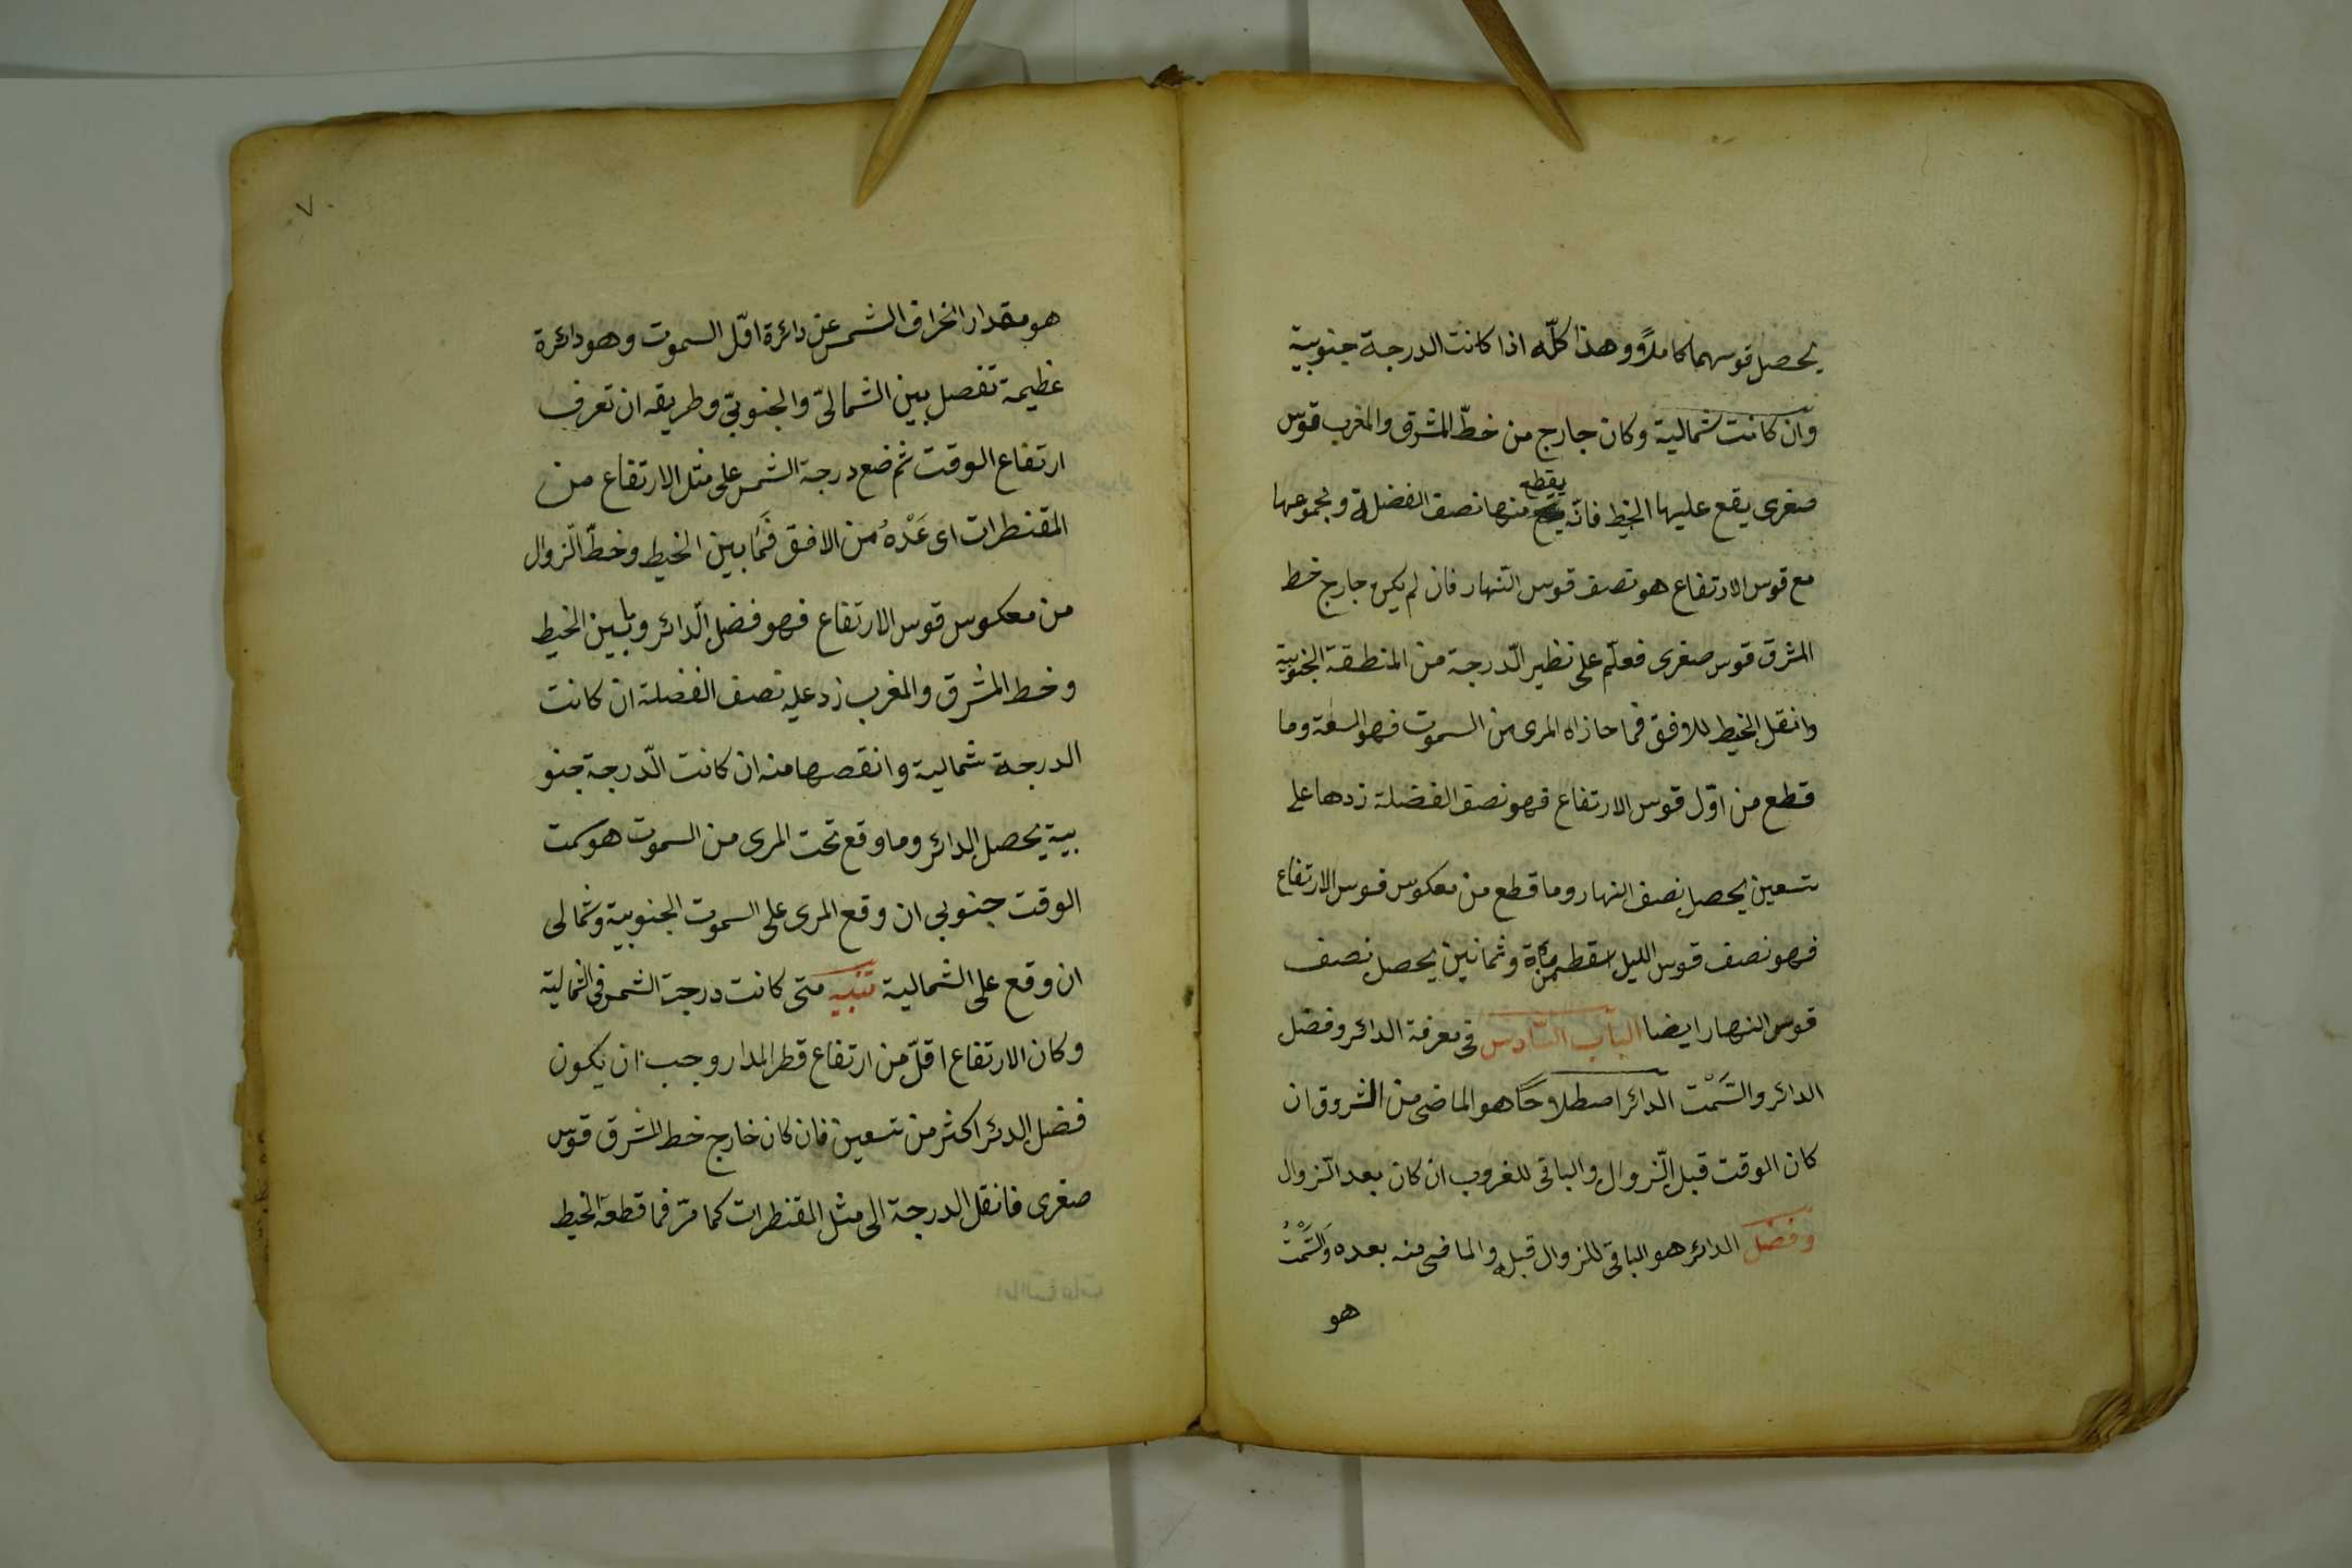 يحصل قوسهما كاملاً وهذا كلّه اذا كانت الدرجة جنوبية
وان كانت شمالية وكان جارج من خطّ المشرق والمغرب قوس
صغرى يقع عليها الخيط فانّه يقطع منها نصف الفضلة ومجموعها
مع قوس الارتفاع هو نصف قوس النّهار فان لم يكن جارج خط
المشرق قوس صغرى فعلّم على نظير الدّرجة من المنطقة الجنوبية
وانقل الخيط للافق فما حازاه المرى من السموت فهو السعة وما
قطع من اوّل قوس الارتفاع فهو نصف الفضلة زدها على
تسعين يحصل نصف النهار وما قطع من معكوس قوس الارتفاع
فهو نصف قوس الليل اسقطه من مأة وثمانين يحصل نصف
قوس النهار ايضا الباب السّادس فى معرفة الدائر وفضل
الدائر والسَّمْت الدائر اصطلاحًا هو الماضى من الشروق ان
كان الوقت قبل الزّوال والباقى للغروب ان كان بعد الزّوال
وفضل الدائر هو الباقى للزوال قبله والماضى منه بعده والسَّمْتُ
هو
٧٠
هو مقدار انحراف الشمس عن دائرة اوّل السموت وهو دائرة
عظيمة تفصل بين الشمالىّ والجنوبىّ وطريقه ان تعرف
ارتفاع الوقت ثم ضع درجة الشمس على مثل الارتفاع من
المقنطرات اى عَدْهُ من الافق فَمَا بين الخيط وخطّ الزّوال
من معكوس قوس الارتفاع فهو فضل الدّائر وما بين الخيط
وخط المشرق والمغرب زد عليه نصف الفضلة ان كانت
الدرجة شمالية وانقصها منه ان كانت الدّرجة جنو
بية يحصل الدائر وما وقع تحت المرى من السموت هو سمت
الوقت جنوبى ان وقع المرى على السموت الجنوبية وشمالى
ان وقع على الشمالية تنبيه متى كانت درجة الشمس فى الشمالية
وكان الارتفاع اقلّ من ارتفاع قطر المدار وجب ان يكون
فضل الدئر اكثر من تسعين فان كان خارج خط المشرق قوس
صغرى فانقل الدرجة الى مثل المقنطرات كما مرّ فما قطعه الخيط